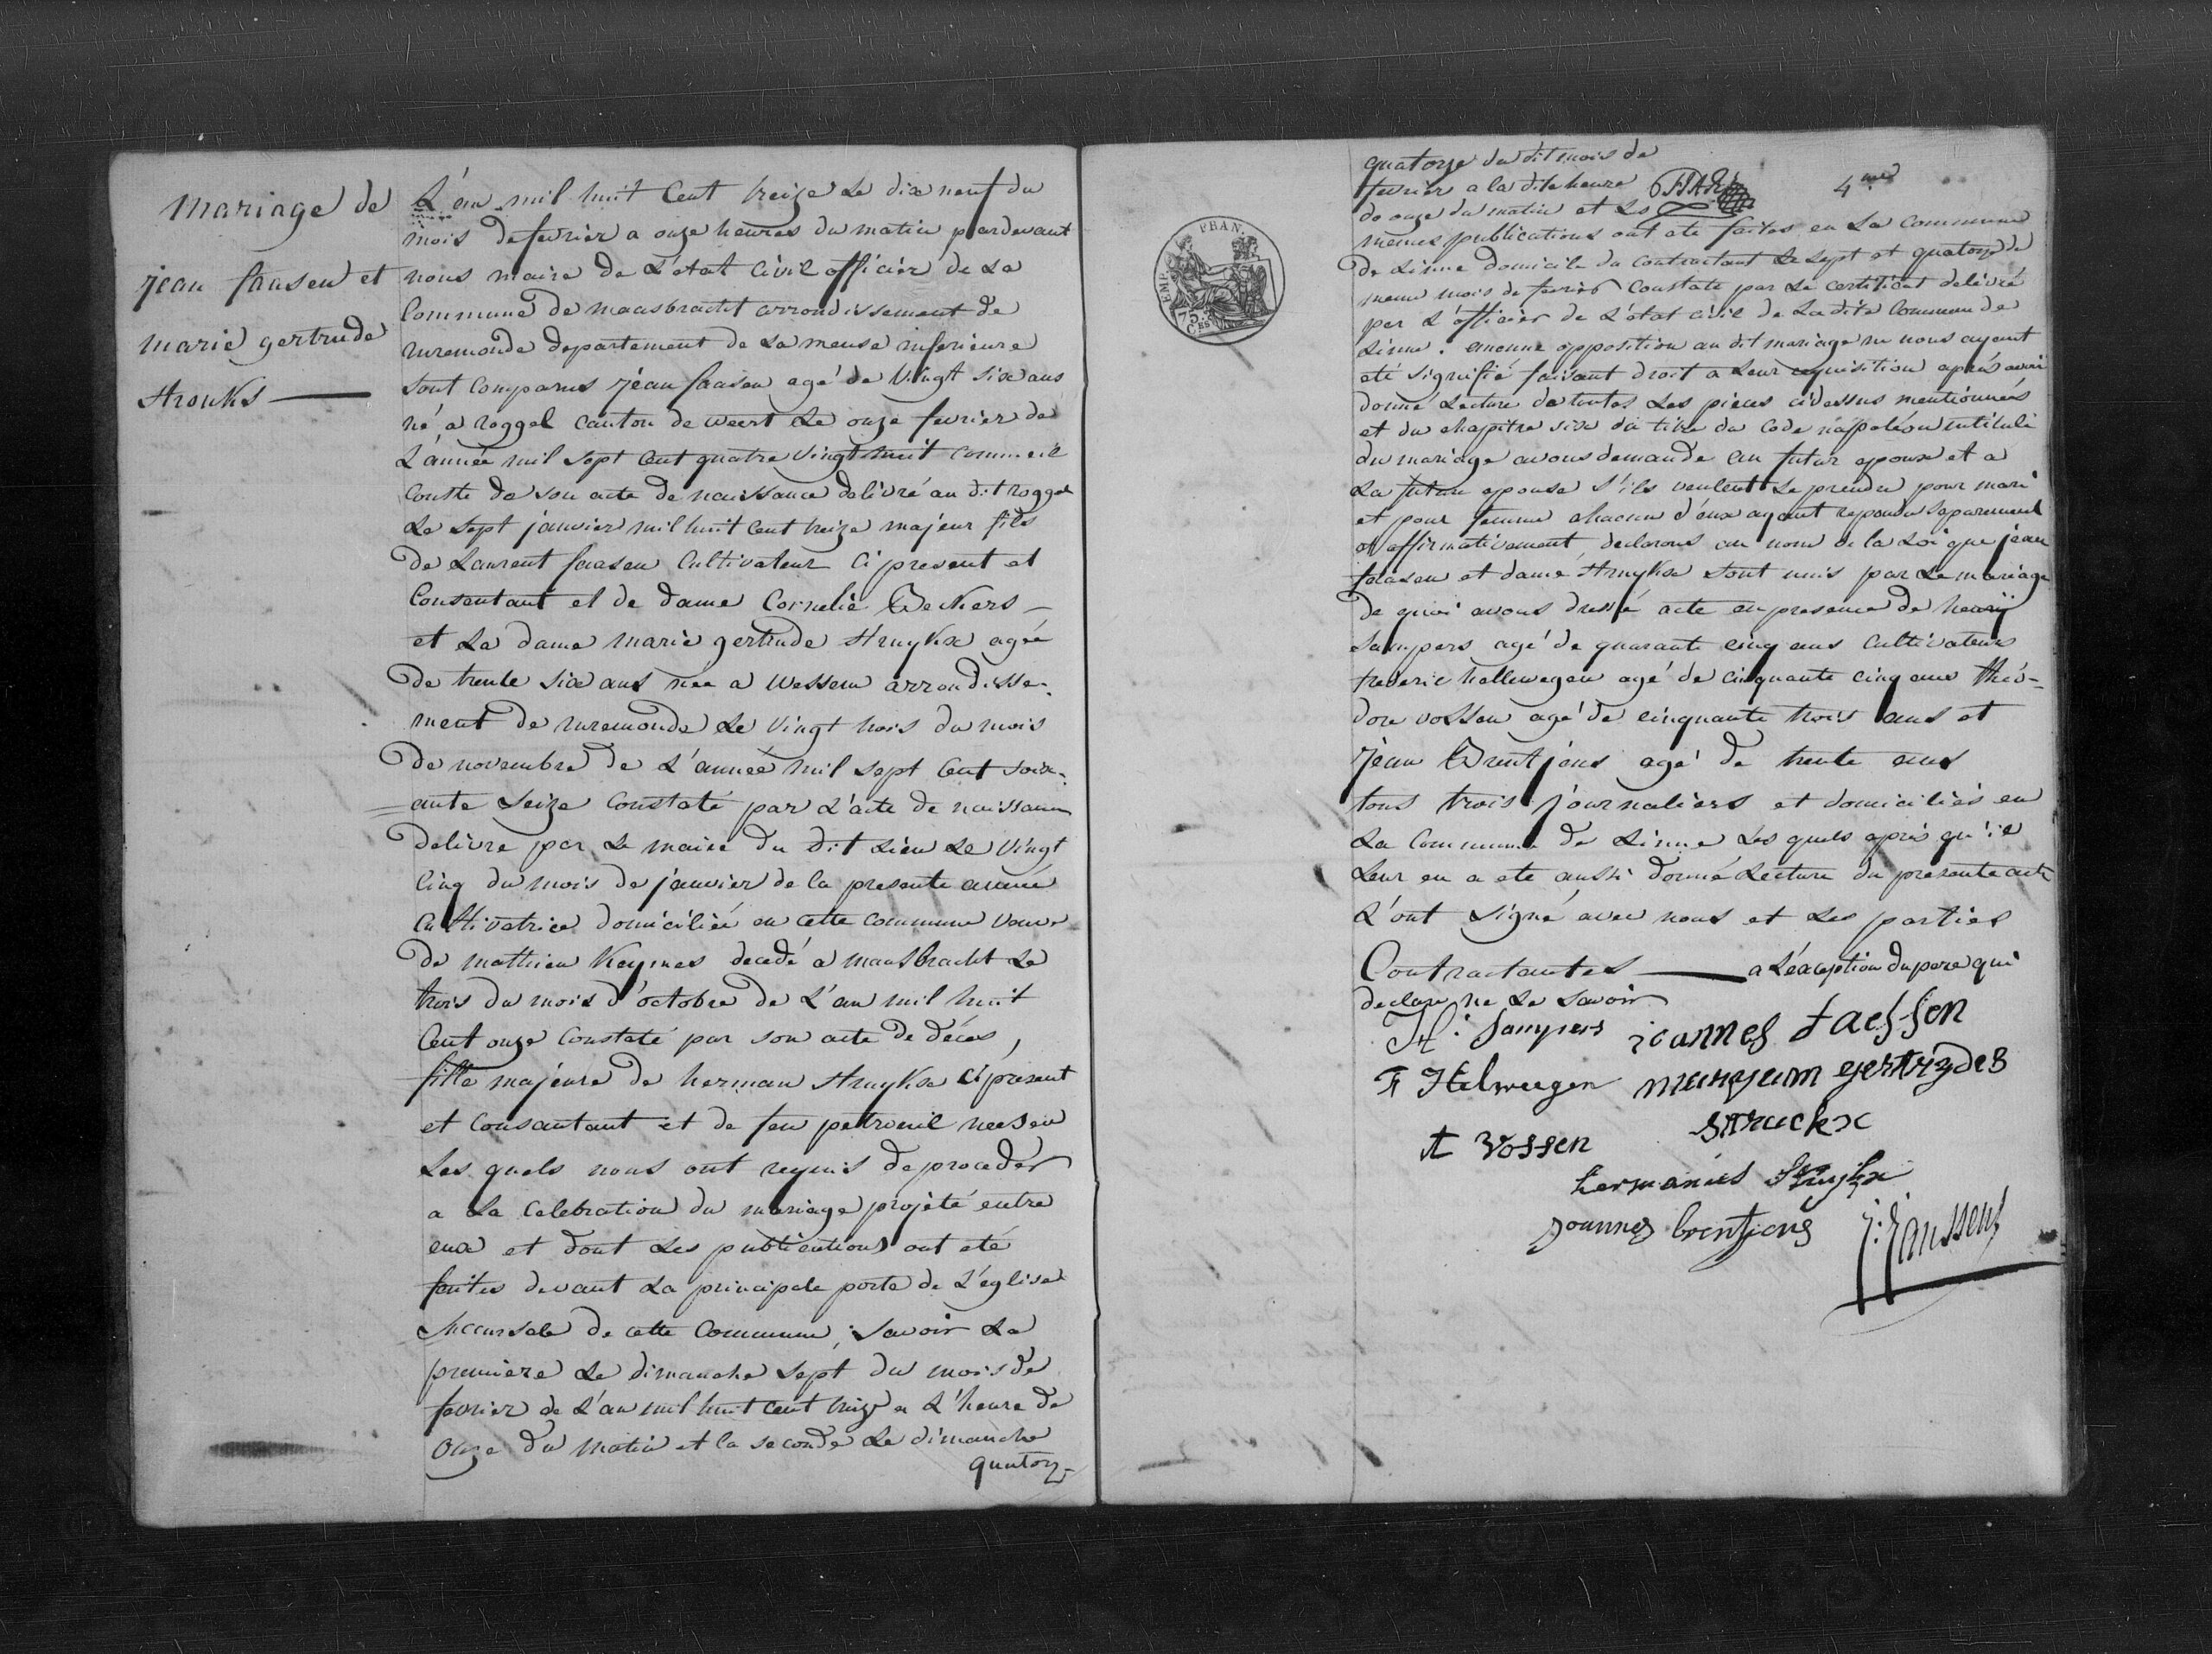 Mariage de
jean faasen et
marie gertrude
Strouks
L'an mil huit Cent treize Le dix neuf du
mois de fevrier a onze heures du matin pardevant
nous maire de L'état Civil officier de La
Commune de maasbracht arrondissement de
ruremonde departement de La meuse inferieure
sont Comparus jean faasen agé de Vingt six ans
né a roggel Canton de weert Le onze fevrier de
L'année mil sept Cent quatre Vingt huit comme il
Conste de son acte de naissance delivré au dit roggel
Le sept janvier mil huit Cent treize majeur fils
de Laurent faasen Cultivateur Ci present et
Consentant et de dame Cornelie Beckers
et La dame marie gertrude Struykx agée
de trente six ans née a Wessem arrondisse-
ment de ruremonde Le Vingt trois du mois
de novembre de L'année mil sept Cent soix-
=ante Seize Constaté par L'acte de naissance
delivre par Le maire du dit Lieu Le Vingt
Cinq du mois de janvier de la presente année
Cultivatrice domiciliée en cette commune veuve
de mathieu Keymes decedé a maasbracht Le
trois du mois d'octobre de L'an mil huit
Cent onze Constaté par son acte de déces,
fille majeure de herman Struykx Ci present
et Consantant et de feu petronil neesen
Les quels nous ont requis de proceder
a La Celebration du mariage projeté entre
eux et dont Les publications ont eté
faites devant La principale porte de L'eglise
Succursale de cette Commune, Savoir La
premiere Le dimanche Sept du mois de
fevrier de L'an mil huit Cent treize a L'heure de
Onze du matin et la seconde Le dimanche
quatorz-
EMP. FRAN.
75.
CES
quatorze du dit mois de
fevrier a la dite heure
de onze du matin et Les
4me
memes publications ont ete faites en La Commune
De Linne domicile du contractant Le Sept et quatorze de
meme mois de fevrier Constaté par Le certificat delivré
par L'officier de L'état civil de La dite Commune de
Linne. aucune opposition au dit mariage ne nous ayant
eté signifié faisant droit a Leur requisition après avoir
donné Lecture de toutes Les pieces cidessus mentionnées
et du chapitre six du titre du Code napoléon intitulé
du mariage avons demande au futur epoux et a
La future epouse s'ils veulent Se prendre pour mari
et pour femme chacun d'eux ayant repondu separement
et affirmativement, declarons au nom de la Loi que jean
faasen et dame Struykx sont unis par Le mariage
De quoi avons dressé acte en presence de henry
Sampers agé de quarante cinq ans Cultivateur
frederic hellewegen agé de cinquante cinq ans théo-
dore vossen agé de cinquante trois ans et
jean Brentjens agé de trente ans
tous trois journaliers et domiciliés en
La Commune de Linne Les quels après qu'il
Leur en a ete aussi donné Lecture du presente acte
L'ont Signé avec nous et Les parties
Contractantes a L'exception du pere qui
declare ne Le Savoir
H: Sampers ioannes faessen
F Helweegen gertrÿdes
struckx
t Vossen
hermanus Struykx
Joannes brentjens J: Janssens